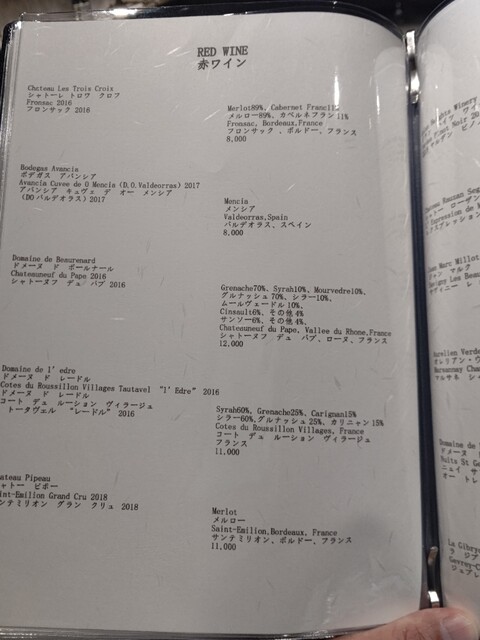 RED WINE
赤ワイン
Chateau Les Trois Croix
シャトーレ トロワ クロフ
Fronsac 2016
フロンサック 2016
Merlot89%, Cabernet Franc11%
メルロー89%、カベルネフラン 11%
Fronsac, Bordeaux,France
フロンサック 、ボルドー、フランス
8,000
Bodegas Avancia
ボデガス アバンシア
Avancia Cuvee de O Mencia (D.O.Valdeorras) 2017
アバンシア キュヴェ デ オー メンシア
(DO バルデオラス) 2017
Mencia
メンシア
Valdeorras,Spain
バルデオラス、スペイン
8,000
Domaine de Beaurenard
ドメーヌ ド ボールナール
Chateauneuf du Pape 2016
シャトーヌフ デュ パプ 2016
Grenache70%, Syrah10%, Mourvedre10%,
グルナッシュ 70%、シラー10%、
ムールヴェードル 10%、
Cinsault6%、その他 4%
サンソー6%、その他 4%
Chateauneuf du Pape, Vallee du Rhone,France
シャトーヌフ デュ パプ、ローヌ、フランス
12,000
Domaine de l' edre
ドメーヌ ド レードル
Cotes du Roussillon Villages Tautavel “l’Edre” 2016
ドメーヌ ド レードル
コート デュ ルーション ヴィラージュ
トータヴェル “レードル” 2016
Syrah60%, Grenache25%, Carignan15%
シラー60%,グルナッシュ 25%、カリニャン 15%
Cotes du Roussillon Villages, France
コート デュ ルーション ヴィラージュ
フランス
11,000
ateau Pipeau
ャトー ピポー
aint-Emilion Grand Cru 2018
ンテミリオン グラン クリュ 2018
Merlot
メルロー
Saint-Emilion,Bordeaux, France
サンテミリオン、ボルドー、フランス
11,000